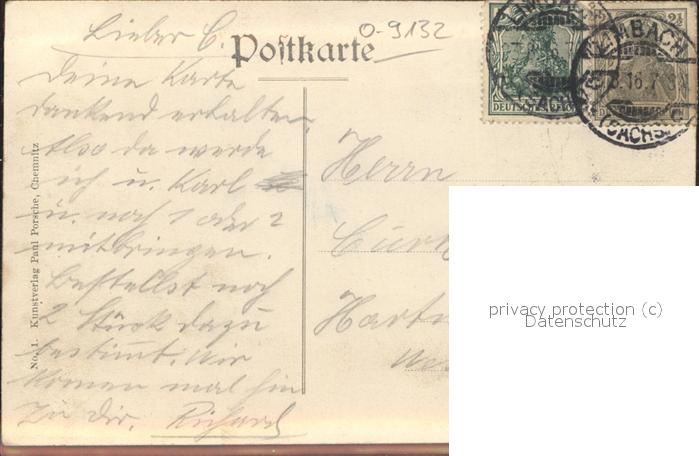 O-9132
Lieber C.
Postkarte
Deine Karte
dankend erhalten.
Also da werde
ich u. Karl
u. noch 1 oder 2
mitbringen.
bestellst noch
2 Stück dazu
bestimmt. Wir
komen mal hin
zu dir. Richard
No. 1. Kunstverlag Paul Porsche, Chemnitz
Herrn
Curt
Hartm
DEUTSCHES REICH
2½
LIMBACH
(SACHS.)
privacy protection (c)
Datenschutz